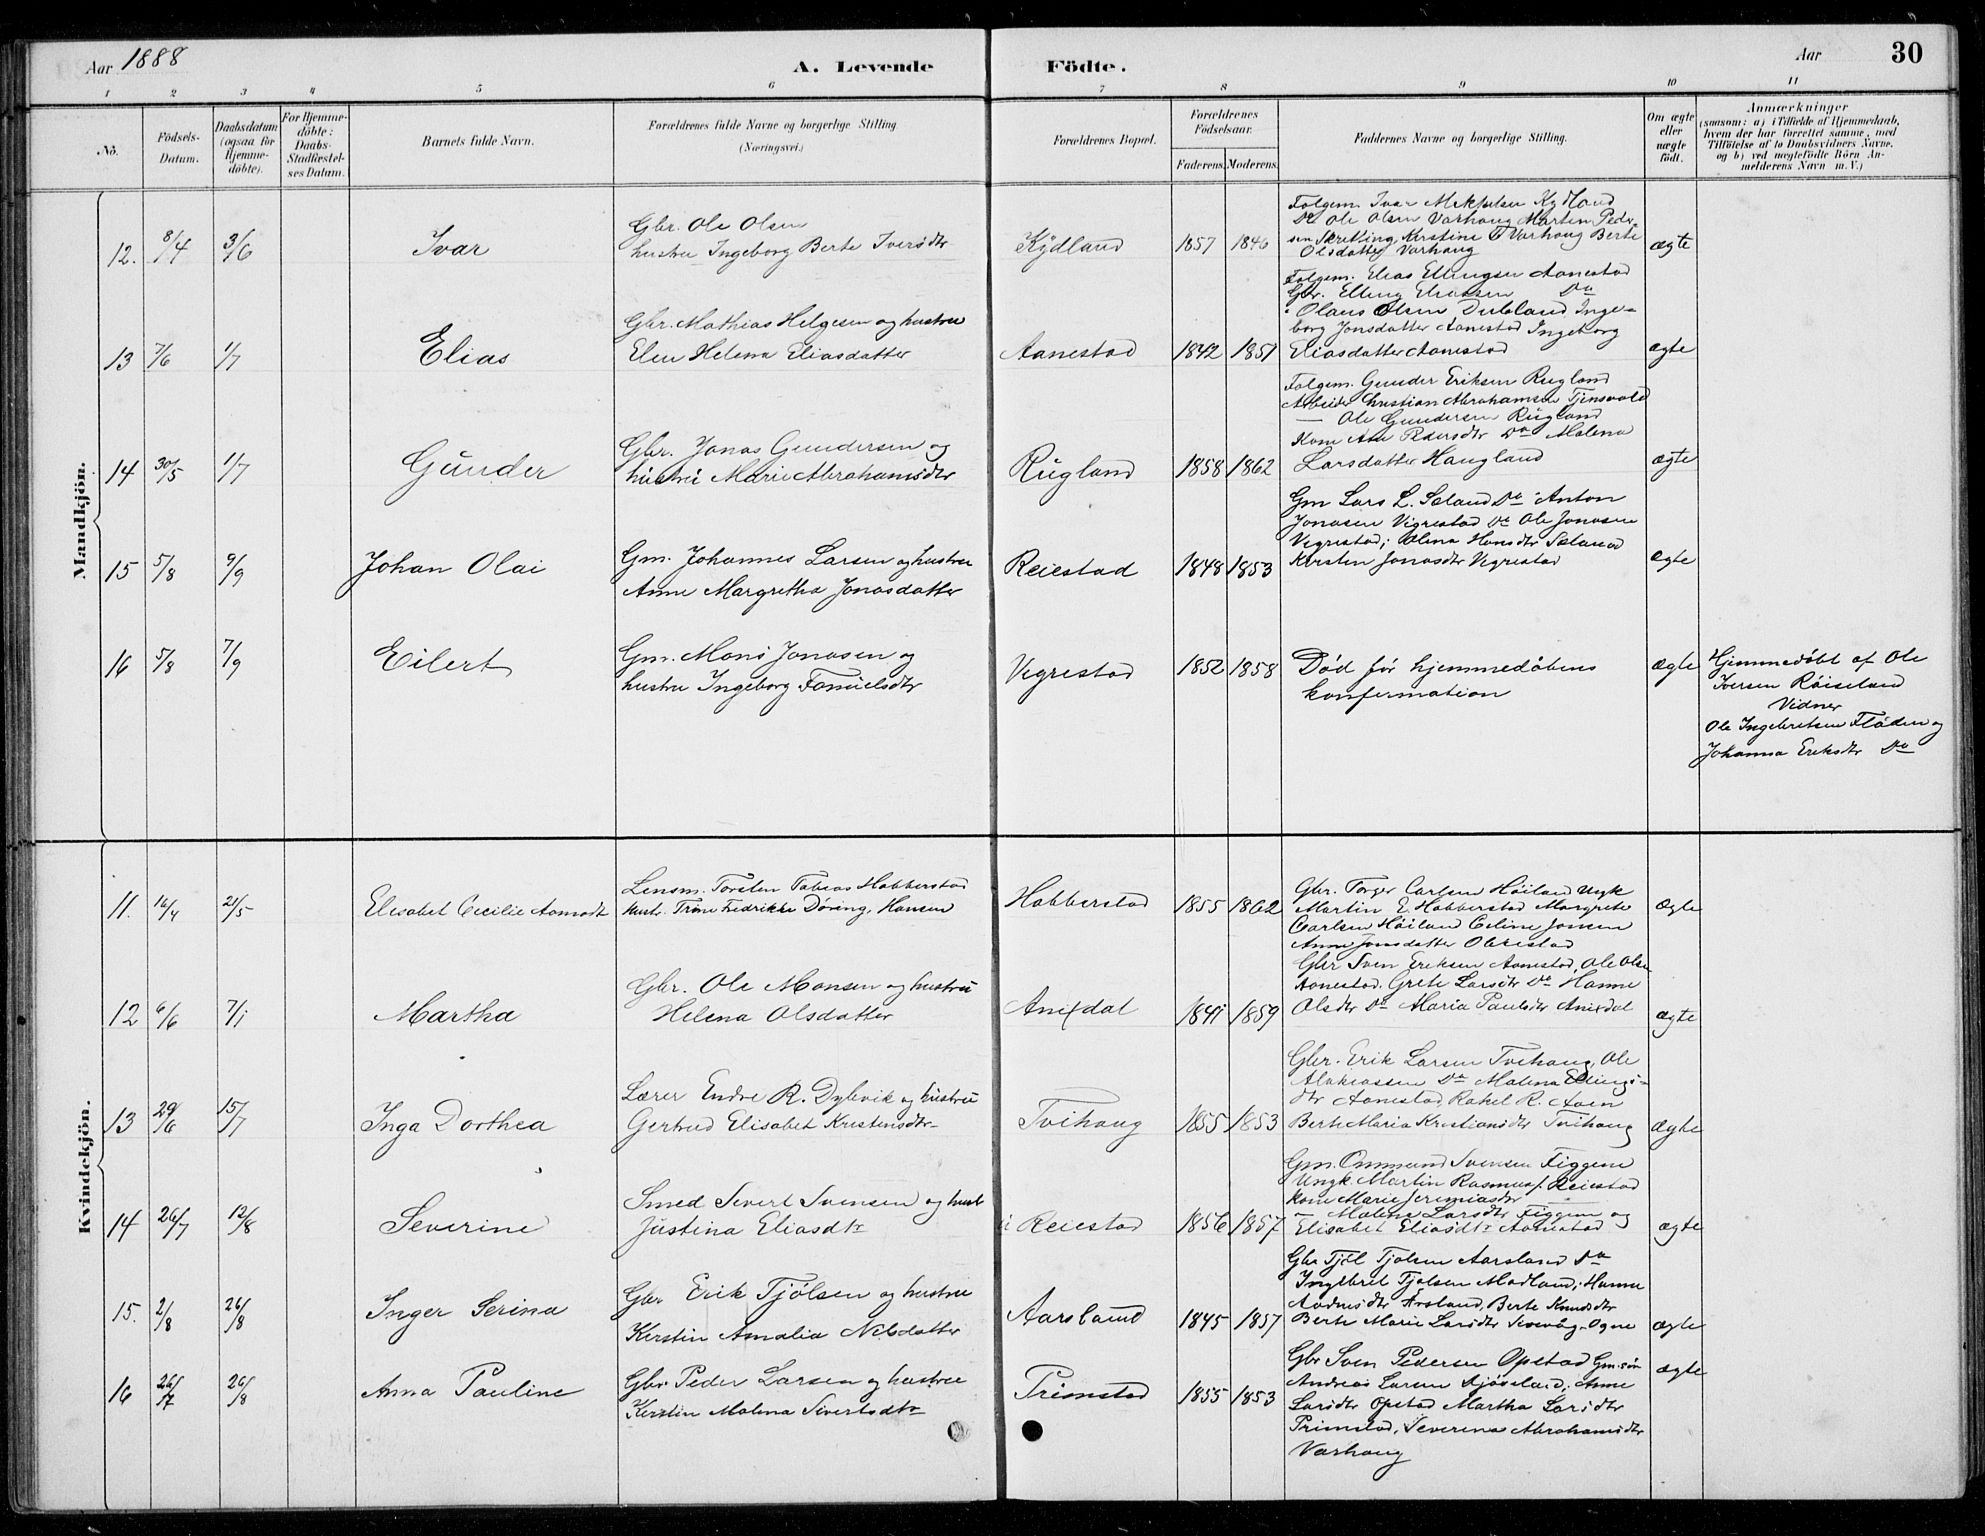 Aar 1888
A. Levende
Födte.
Aar
30
1 2 3 4 5 6 7 8 9 10 11
No.
Födsels-
Datum.
Daabsdatum
(ogsaa for
Hjemme-
döbte).
For Hjemme-
döbte:
Daabs-
Stadfæstel-
ses Datum.
Barnets fulde Navn.
Forældrenes fulde Navne og borgerlige Stilling
(Næringsvei.)
Forældrenes Bopæl.
Forældrenes
Födselsaar.
Faderens. Moderens.
Faddernes Navne og borgerlige Stilling.
Om ægte
eller
uægte
födt.
Anmærkninger
(saasom: a) i Tilfælde af Hjemmedaab,
hvem der har forrettet samme, med
Tilföielse af to Daabsvidners Navne,
og b) ved uægtefödte Börn An-
melderens Navn m. V.)
Mandkjön.
12. 8/4 3/6
Ivar
Gbr. Ole Olsen
hustru Ingeborg Berte Iversdtr
Kydland
1857 1846
Folgem. Ivar Mikkelsen Kydland
Do Ole Olsen Varhaug Martin Peder-
sen Skretting, Kirstine T Varhaug Berte
Olsdatter Varhaug
ægte
13 7/6 1/7
Elias
Gbr. Mathias Helgesen og hustru
Elen Helena Eliasdatter
Aanestad
1842 1851
Folgem. Elias Ellingsen Aanestad
Gbr. Elling Eliassen Do
Olaus Olsen Dubland Inge-
borg Jonsdatter Aanestad Ingeborg
Eliasdatter Aanestad
ægte
14 30/5 1/7
Gunder
Gbr. Jonas Gundersen og
hustru Marie Abrahamsdtr
Rugland
1858 1862
Folgem. Gunder Eriksen Rugland
Arbeider Christian Abrahamsen Tjensvold
— Ole Gundersen Rugland
Kone Ane Pedersdtr Do Malena
Larsdatter Haugland
ægte
15 5/8 9/9
Johan Olai
Gm. Johannes Larsen og hustru
Anne Margretha Jonasdatter
Reiestad
1848 1853
Gm Lars L. Sæland Do Anton
Jonasen Vigrestad Do Ole Jonasen
Vigrestad; Olena Hansdtr Sæland
Kirsten Jonasdtr Vigrestad
ægte
16 5/8 7/9
Eilert
Gm. Mons Jonasen og
hustru Ingeborg Tomielsdtr
Vigrestad
1852 1858
Död för hjemmedöbens
konfermation
ægte
Hjemmedöbt af Ole
Iversen Röiseland
Vidner
Ole Ingebretsen Flöden og
Johanna Eriksdtr Do
Kvindekjön.
11. 16/4 21/5
Elisabet Cecilie Aamodt
Lensm. Torsten Tobias Hobberstad
hust. Trine Fredrikke Döring, Hansen
Hobberstad
1855 1862
Gbr. Torger Carlsen Höiland Ungk
Martin E. Hobberstad Margrete
Carlsen Höiland Celine Jonsen
Anne Jonsdatter Obrestad
ægte
12 6/6 7/1
Martha
Gbr. Ole Monsen og hustru
Helena Olsdatter
Anixdal
1841 1859
Gbr Sven Eriksen Aanestad, Ole Olsen
Aanestad, Grete Larsdtr Do Hanne
Olsdtr Do Maria Paulsdtr Anixdal
ægte
13 29/6 15/7
Inga Dorthea
Lærer Endre R. Dybvik og hustru
Gertrud Elisabet Kristensdtr
Tvihaug
1855 1853
Gbr. Erik Larsen Tvihaug, Ole
Do Malena Ellings-
dtr Aanestad, Rakel R. Aven
Berte Maria Kristiansdtr Tvihaug
ægte
14 26/7 12/8
Severine
Smed Sivert Svensen og hust
Justina Eliasdtr
Reiestad
1856 1857
Gm. Ommund Svensen Figgene
Ungk Martin Rasmus. Reiestad
kone Marie Jeremiasdtr
— Malene Larsdtr Figgen og
Elisabet Eliasdtr Aanestad
ægte
15. 2/8 26/8
Inger Serina
Gbr Erik Tjölsen og hustru
Kerstin Amalia Nilsdatter
Aarsland
1845 1857
Gbr Tjöl Tjölsen Aarsland Do
Ingebret Tjolsen Madland; Hanne
Aadnesdtr Arsland, Berte Knudsdtr
Berte Marie Larsdtr Ogne
ægte
16 26/7 26/8
Anna Pauline
Gbr Peder Larsen og hustru
Kerstin Malena Sivertsdtr
Primstad
1855 1853
Gbr Sven Pedersen Opstad Gm. sön
Andreas Larsen Njöseland; Anne
Larsdtr Opstad Martha Larsdtr
Primstad, Severena Abrahamsdtr
Varhaug
ægte